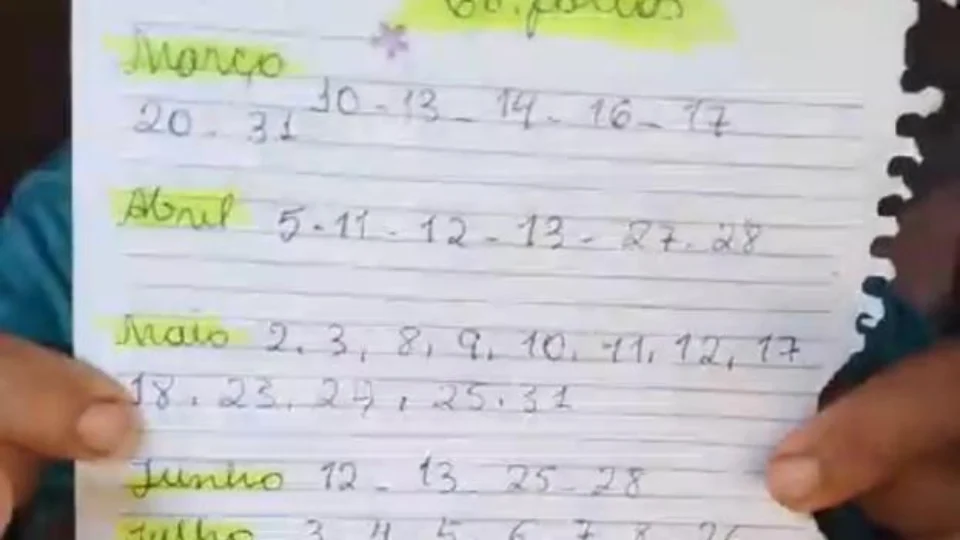 Março
10 - 13 - 14 - 16 - 17
20 - 31
Abril 5 - 11 - 12 - 13 - 27 - 28
Maio 2, 3, 8, 9, 10, 11, 12, 17
18, 23, 24, 25, 31
Junho 12 - 13 25 - 28
Julho 3 4 5 6 7 8 26